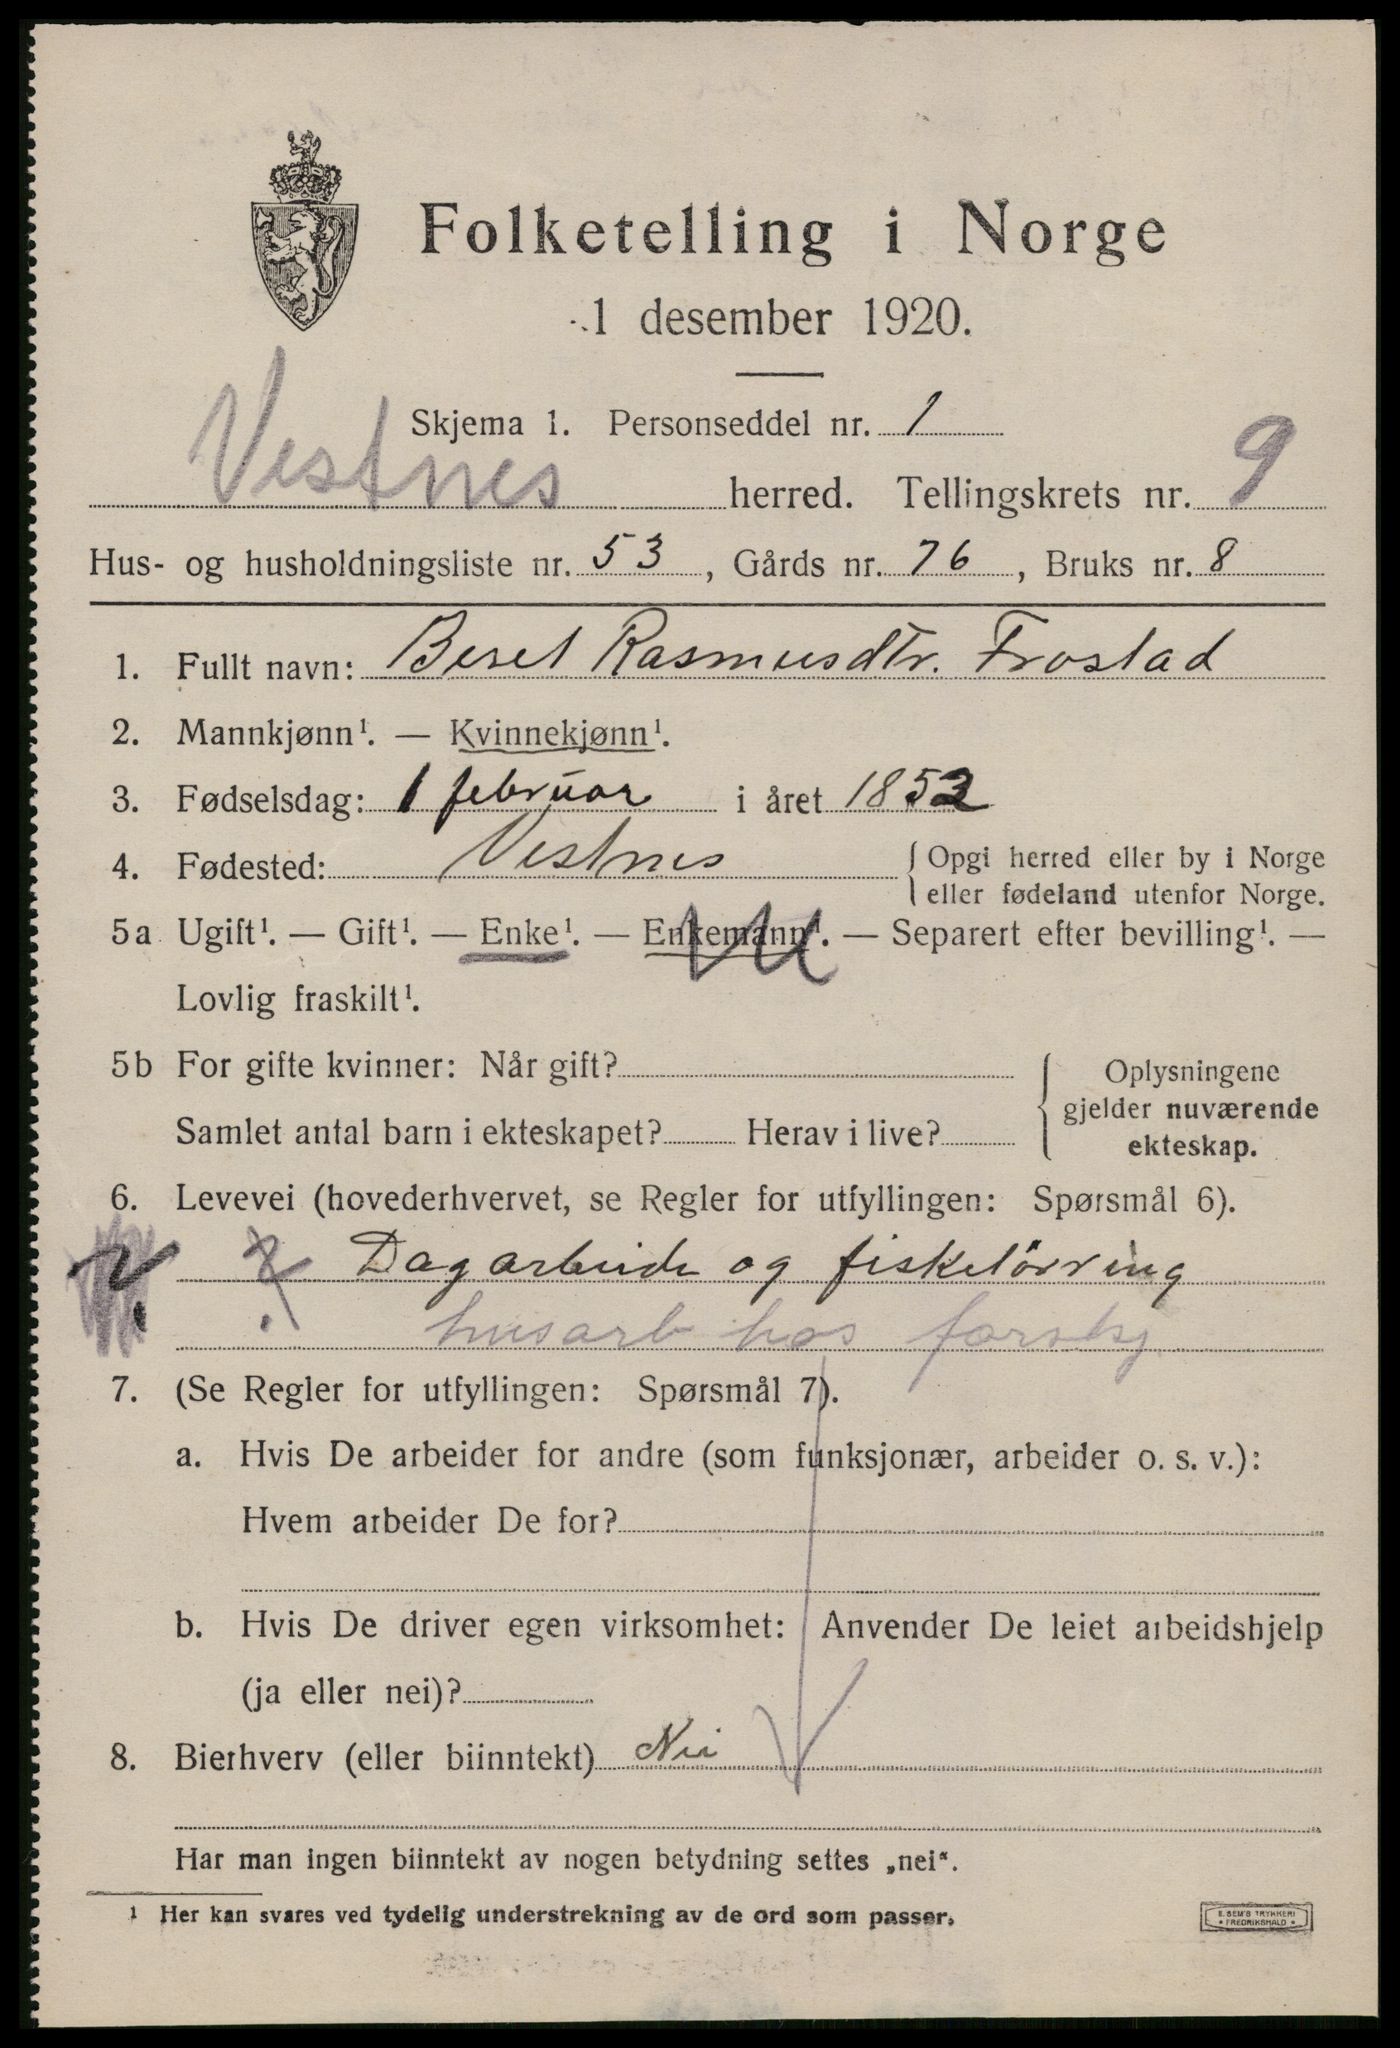 Folketelling i Norge
1 desember 1920.
Skjema 1. Personseddel nr. 1
Vestnes herred. Tellingskrets nr. 9
Hus- og husholdningsliste nr. 53, Gårds nr. 76, Bruks nr. 8
1. Fullt navn: Beret Rasmusdtr. Frostad
2. Mannkjønn¹. — Kvinnekjønn¹.
3. Fødselsdag: 1 februar i året 1852
4. Fødested: Vestnes { Opgi herred eller by i Norge
eller fødeland utenfor Norge.
5a Ugift¹. — Gift¹. — Enke¹. — Enkemann¹. — Separert efter bevilling¹. —
Lovlig fraskilt¹.
5b For gifte kvinner: Når gift? { Oplysningene
gjelder nuværende
Samlet antal barn i ekteskapet? Herav i live?
ekteskap.
6. Levevei (hovederhvervet, se Regler for utfyllingen: Spørsmål 6).
? Dagarbeide og fisketörring
husarb hos forskj.
7. (Se Regler for utfyllingen: Spørsmål 7).
a. Hvis De arbeider for andre (som funksjonær, arbeider o. s. v.):
Hvem arbeider De for?
b. Hvis De driver egen virksomhet: Anvender De leiet arbeidshjelp
(ja eller nei)?
8. Bierhverv (eller biinntekt) Nei
Har man ingen biinntekt av nogen betydning settes „nei“.
¹ Her kan svares ved tydelig understrekning av de ord som passer.
E. SEM'S TRYKKERI
• FREDRIKSHALD •